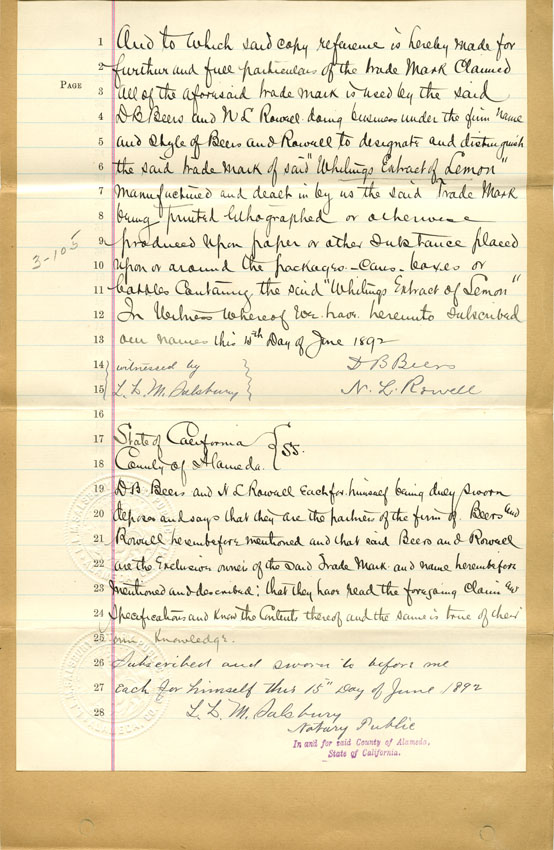 1 And to which said copy reference is hereby made for
2 further and full particulars of the trade Mark Claimed
PAGE
3 All of the aforesaid trade mark is used by the said
4 D B Beers and N L Rowell doing business under the firm name
5 and Style of Beers and Rowell to designate and distinguish
6 the said trade mark of said "Whitings Extract of Lemon"
7 Manufactured and dealt in by us the said Trade Mark
8 being printed lithographed or otherwise
9 produced upon paper or other substance placed
3-105
10 upon or around the packages - Cans - boxes or
11 bottles Containing the said "Whitings Extract of Lemon"
12 In Witness Whereof We have hereunto subscribed
13 our names this 15th Day of June 1892
14 witnessed by D B Beers
15 L. L. M. Salsbury N. L. Rowell
16
17 State of California } SS.
18 County of Alameda.
19 D. B. Beers and N L Rowell Each for himself being duly sworn
20 deposes and says that they are the partners of the firm of Beers and
21 Rowell hereinbefore mentioned and that said Beers and Rowell
22 are the Exclusive owners of the said Trade Mark and name hereinbefore
23 mentioned and described: that they have read the foregoing Claim and
24 Specifications and Know the Contents thereof and the same is true of their
25 own Knowledge.
26 Subscribed and sworn to before me
27 Each for himself this 15th Day of June 1892
28 L. L. M. Salsbury
Notary Public
In and for said County of Alameda,
State of California.